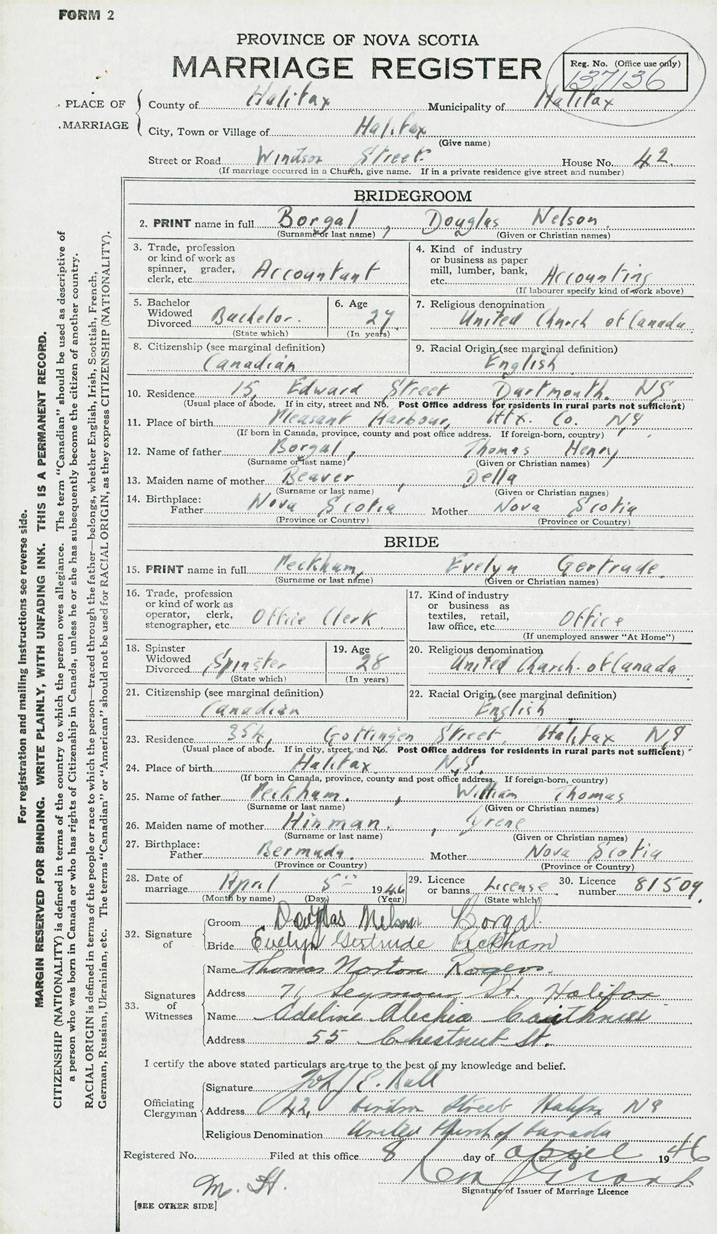 FORM 2
PROVINCE OF NOVA SCOTIA
MARRIAGE REGISTER
Reg. No. (Office use only)
137136
PLACE OF MARRIAGE
County of Halifax Municipality of Halifax
City, Town or Village of Halifax
(Give name)
Street or Road Windsor Street House No. 42
(If marriage occurred in a Church, give name. If in a private residence give street and number)
BRIDEGROOM
2. PRINT name in full Borgal, Douglas Nelson
(Surname or last name) (Given or Christian names)
3. Trade, profession or kind of work as spinner, grader, clerk, etc. Accountant
4. Kind of industry or business as paper mill, lumber, bank, etc. Accounting
(If labourer specify kind of work above)
5. Bachelor Widowed Divorced Bachelor
(State which)
6. Age 27
(In years)
7. Religious denomination
United Church of Canada
8. Citizenship (see marginal definition)
Canadian
9. Racial Origin (see marginal definition)
English
10. Residence 15, Edward Street Dartmouth. NS
(Usual place of abode. If in city, street and No. Post Office address for residents in rural parts not sufficient)
11. Place of birth Pleasant Harbour, Hfx. Co. NS
(If born in Canada, province, county and post office address. If foreign-born, country)
12. Name of father Borgal, Thomas Henry
(Surname or last name) (Given or Christian names)
13. Maiden name of mother Beaver, Della
(Surname or last name) (Given or Christian names)
14. Birthplace: Father Nova Scotia Mother Nova Scotia
(Province or Country) (Province or Country)
BRIDE
15. PRINT name in full Peckham, Evelyn Gertrude
(Surname or last name) (Given or Christian names)
16. Trade, profession or kind of work as operator, clerk, stenographer, etc. Office Clerk
17. Kind of industry or business as textiles, retail, law office, etc. Office
(If unemployed answer "At Home")
18. Spinster Widowed Divorced Spinster
(State which)
19. Age 28
(In years)
20. Religious denomination
United Church of Canada
21. Citizenship (see marginal definition)
Canadian
22. Racial Origin (see marginal definition)
English
23. Residence 354, Gottingen Street, Halifax NS
(Usual place of abode. If in city, street, and No. Post Office address for residents in rural parts not sufficient)
24. Place of birth Halifax N.S.
(If born in Canada, province, county and post office address. If foreign-born, country)
25. Name of father Peckham, William Thomas
(Surname or last name) (Given or Christian names)
26. Maiden name of mother Hinman, Irene
(Surname or last name) (Given or Christian names)
27. Birthplace: Father Bermuda Mother Nova Scotia
(Province or Country) (Province or Country)
28. Date of marriage April 5th 1946
(Month by name) (Day) (Year)
29. Licence or banns License
(State which)
30. Licence number 81509
32. Signature of
Groom Douglas Nelson Borgal
Bride Evelyn Gertrude Peckham
33. Signatures of Witnesses
Name Thomas Norton Rogers
Address 71 Seymour St. Halifax
Name Adeline
Address 55 Chestnut St.
I certify the above stated particulars are true to the best of my knowledge and belief.
Officiating Clergyman
Signature
Address 42, Windsor Street Halifax NS
Religious Denomination United Church of Canada
Registered No. Filed at this office 8 day of April 1946
Signature of Issuer of Marriage Licence
M. H.
[SEE OTHER SIDE]
For registration and mailing instructions see reverse side.
MARGIN RESERVED FOR BINDING. WRITE PLAINLY, WITH UNFADING INK. THIS IS A PERMANENT RECORD.
CITIZENSHIP (NATIONALITY) is defined in terms of the country to which the person owes allegiance. The term "Canadian" should be used as descriptive of
a person who was born in Canada or who has rights of Citizenship in Canada, unless he or she has subsequently become the citizen of another country.
RACIAL ORIGIN is defined in terms of the people or race to which the person—traced through the father—belongs, whether English, Irish, Scottish, French,
German, Russian, Ukrainian, etc. The terms "Canadian" or "American" should not be used for RACIAL ORIGIN, as they express CITIZENSHIP (NATIONALITY).